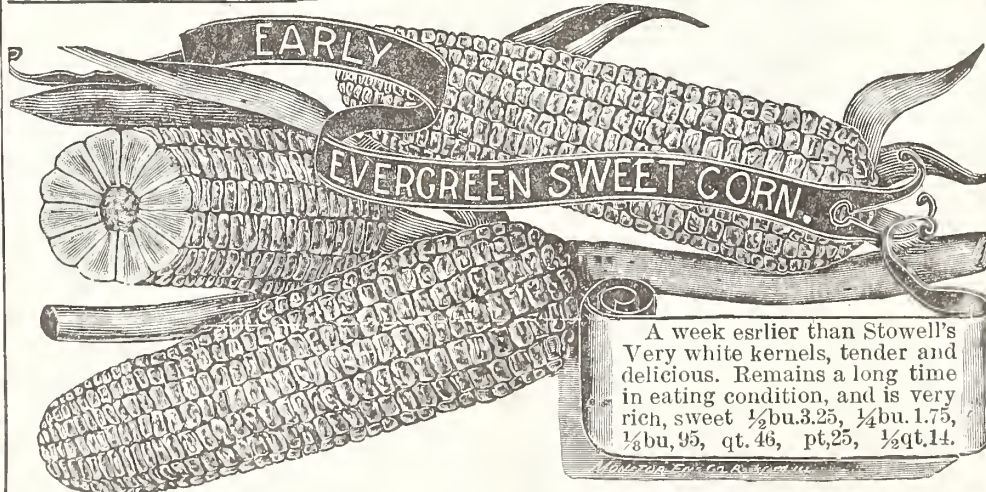 EARLY
EVERGREEN SWEET CORN.
A week esrlier than Stowell's
Very white kernels, tender and
delicious. Remains a long time
in eating condition, and is very
rich, sweet ½bu.3.25, ¼bu. 1.75,
⅛bu, 95, qt. 46, pt,25, ½qt.14.
MONITOR ENG CO